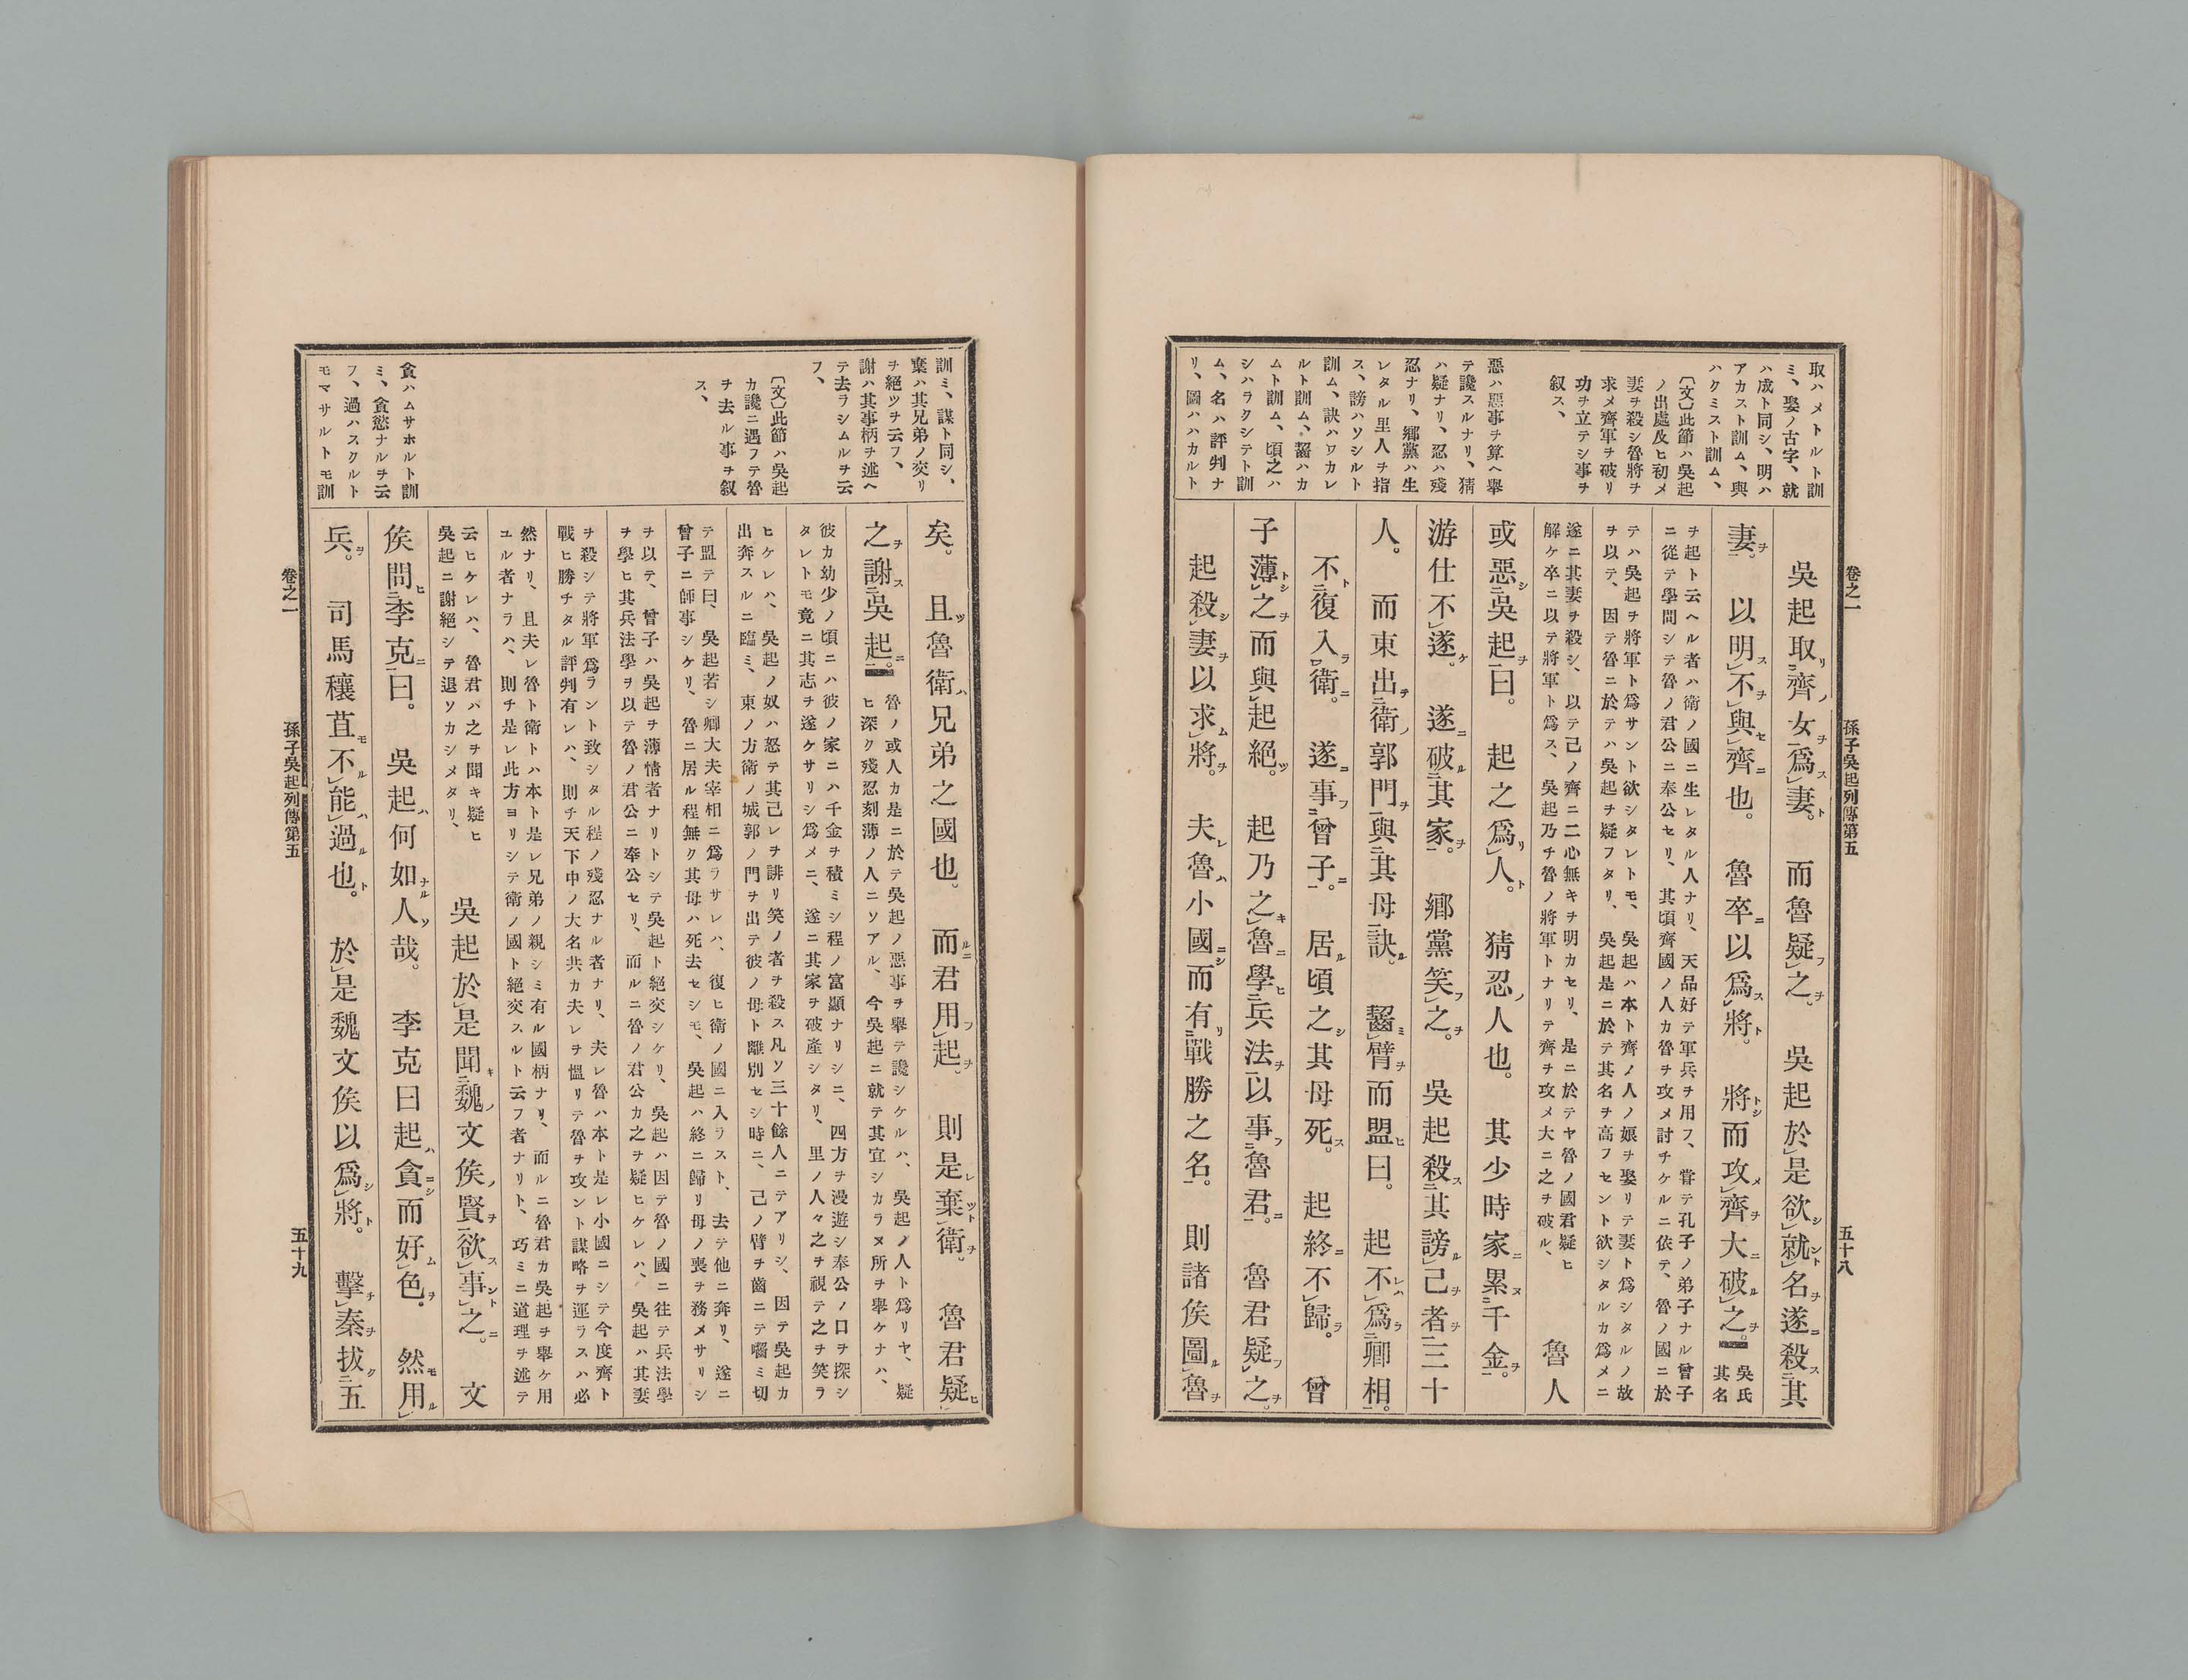 卷之一 孫子吳起列傳第五 五十八
取ハメトルト訓
ミ、娶ノ古字、就
ハ成ト同シ、明ハ
アカスト訓ム、與
ハクミスト訓ム、
〔文〕此節ハ吳起
ノ出處及ヒ初メ
妻ヲ殺シ魯將ヲ
求メ齊軍ヲ破リ
功ヲ立テシ事ヲ
叙ス、
惡ハ惡事ヲ算ヘ擧
テ讒スルナリ、猜
ハ疑ナリ、忍ハ殘
忍ナリ、鄕黨ハ生
レタル里人ヲ指
ス、謗ハソシルト
訓ム、訣ハワカレ
ルト訓ム、齧ハカ
ムト訓ム、頃之ハ
シハラクシテト訓
ム、名ハ評判ナ
リ、圖ハハカルト
吳起取齊女爲妻。而魯疑之。吳起於是欲就名遂殺其
妻。以明不與齊也。魯卒以爲將。將而攻齊大破之。吳氏
其名
ヲ起ト云ヘル者ハ衛ノ國ニ生レタル人ナリ、天品好テ軍兵ヲ用フ、嘗テ孔子ノ弟子ナル曾子
ニ從テ學問シテ魯ノ君公ニ奉公セリ、其頃齊國ノ人カ魯ヲ攻メ討チケルニ依テ、魯ノ國ニ於
テハ吳起ヲ將軍ト爲サント欲シタレトモ、吳起ハ本ト齊ノ人ノ娘ヲ娶リテ妻ト爲シタルノ故
ヲ以テ、因テ魯ニ於テハ吳起ヲ疑フタリ、吳起是ニ於テ其名ヲ高フセント欲シタルカ爲メニ
遂ニ其妻ヲ殺シ、以テ己ノ齊ニ二心無キヲ明カセリ、是ニ於テヤ魯ノ國君疑ヒ
解ケ卒ニ以テ將軍ト爲ス、吳起乃チ魯ノ將軍トナリテ齊ヲ攻メ大ニ之ヲ破ル、
魯人
或惡吳起曰。起之爲人。猜忍人也。其少時家累千金。
游仕不遂。遂破其家。鄕黨笑之。吳起殺其謗己者三十
人。而東出衛郭門與其母訣。齧臂而盟曰。起不爲卿相。
不復入衛。遂事曾子。居頃之其母死。起終不歸。曾
子薄之而與起絕。起乃之魯學兵法以事魯君。魯君疑之。
起殺妻以求將。夫魯小國而有戰勝之名。則諸侯圖魯
訓ミ、謀ト同シ、
棄ハ其兄弟ノ交リ
ヲ絕ツヲ云フ、
謝ハ其事柄ヲ述ヘ
テ去ラシムルヲ云
フ、
〔文〕此節ハ吳起
カ讒ニ遇フテ魯
ヲ去ル事ヲ叙
ス、
貪ハムサホルト訓
ミ、貪慾ナルヲ云
フ、過ハスクルト
モマサルトモ訓
矣。且魯衛兄弟之國也。而君用起。則是棄衛。魯君疑
之謝吳起。
魯ノ或人カ是ニ於テ吳起ノ惡事ヲ擧テ讒シケルハ、吳起ノ人ト爲リヤ、疑
ヒ深ク殘忍刻薄ノ人ニソアル、今吳起ニ就テ其宜シカラヌ所ヲ擧ケナハ、
彼カ幼少ノ頃ニハ彼ノ家ニハ千金ヲ積ミシ程ノ富顯ナリシニ、四方ヲ漫遊シ奉公ノ口ヲ探シ
タレトモ竟ニ其志ヲ遂ケサリシ爲メニ、遂ニ其家ヲ破產シタリ、里ノ人々之ヲ視テ之ヲ笑ラ
ヒケレハ、吳起ノ奴ハ怒テ其己レヲ誹リ笑ノ者ヲ殺ス凡ソ三十餘人ニテアリシ、因テ吳起カ
出奔スルニ臨ミ、東ノ方衛ノ城郭ノ門ヲ出テ彼ノ母ト離別セシ時ニ、己ノ臂ヲ齒ニテ嚙ミ切
テ盟テ曰、吳起若シ卿大夫宰相ニ爲ラサレハ、復ヒ衛ノ國ニ入ラスト、去テ他ニ奔リ、遂ニ
曾子ニ師事シケリ、魯ニ居ル程無ク其母ハ死去セシモ、吳起ハ終ニ歸リ母ノ喪ヲ務メサリシ
ヲ以テ、曾子ハ吳起ヲ薄情者ナリトシテ吳起ト絕交シケリ、吳起ハ因テ魯ノ國ニ往テ兵法學
ヲ學ヒ其兵法學ヲ以テ魯ノ君公ニ奉公セリ、而ルニ魯ノ君公カ之ヲ疑ヒケレハ、吳起ハ其妻
ヲ殺シテ將軍爲ラント致シタル程ノ殘忍ナル者ナリ、夫レ魯ハ本ト是レ小國ニシテ今度齊ト
戰ヒ勝チタル評判有レハ、則チ天下中ノ大名共カ夫レヲ慍リテ魯ヲ攻ント謀略ヲ運ラスハ必
然ナリ、且夫レ魯ト衛トハ本ト是レ兄弟ノ親シミ有ル國柄ナリ、而ルニ魯君カ吳起ヲ擧ケ用
ユル者ナラハ、則チ是レ此方ヨリシテ衛ノ國ト絕交スルト云フ者ナリト、巧ミニ道理ヲ述テ
云ヒケレハ、魯君ハ之ヲ聞キ疑ヒ
吳起ニ謝絕シテ退ソカシメタリ、
吳起於是聞魏文侯賢欲事之。文
侯問李克曰。吳起何如人哉。李克曰起貪而好色。然用
兵。司馬穰苴不能過也。於是魏文侯以爲將。擊秦拔五
卷之一 孫子吳起列傳第五 五十九